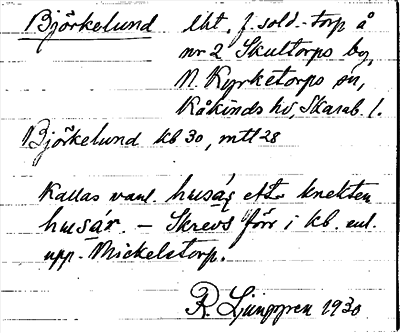 Björkelund lht. f. sold.-torp å
nr 2 Skultorps by,
N. Kyrketorps sn,
Kåkinds hd, Skarab. l.
Björkelund kb 30, mtl 28
Kallas vanl. husár efter knekten
husár. – Skrevs förr i kb. enl.
upp. Mickelstorp.
R. Ljunggren 1930